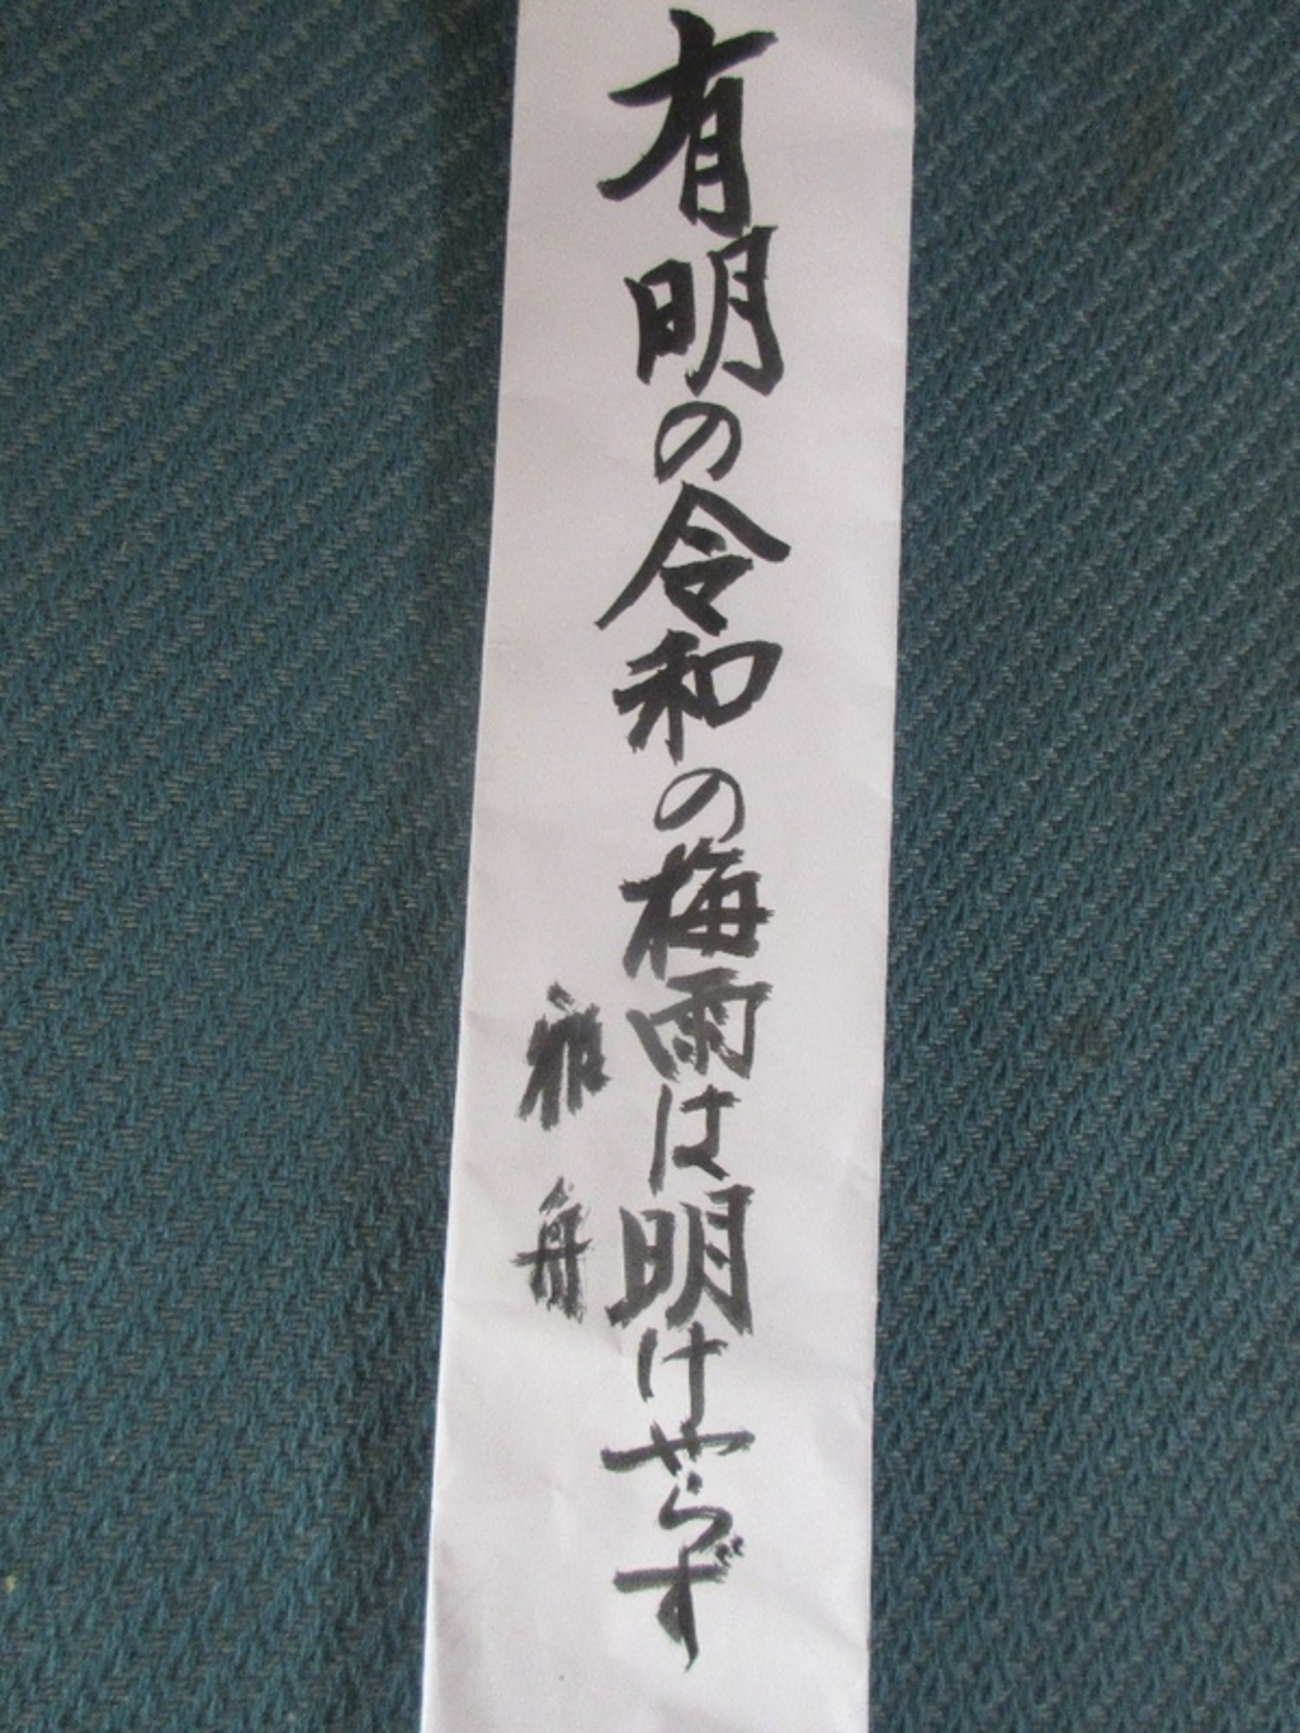 有明の令和の梅雨は明けやらず
雅舟